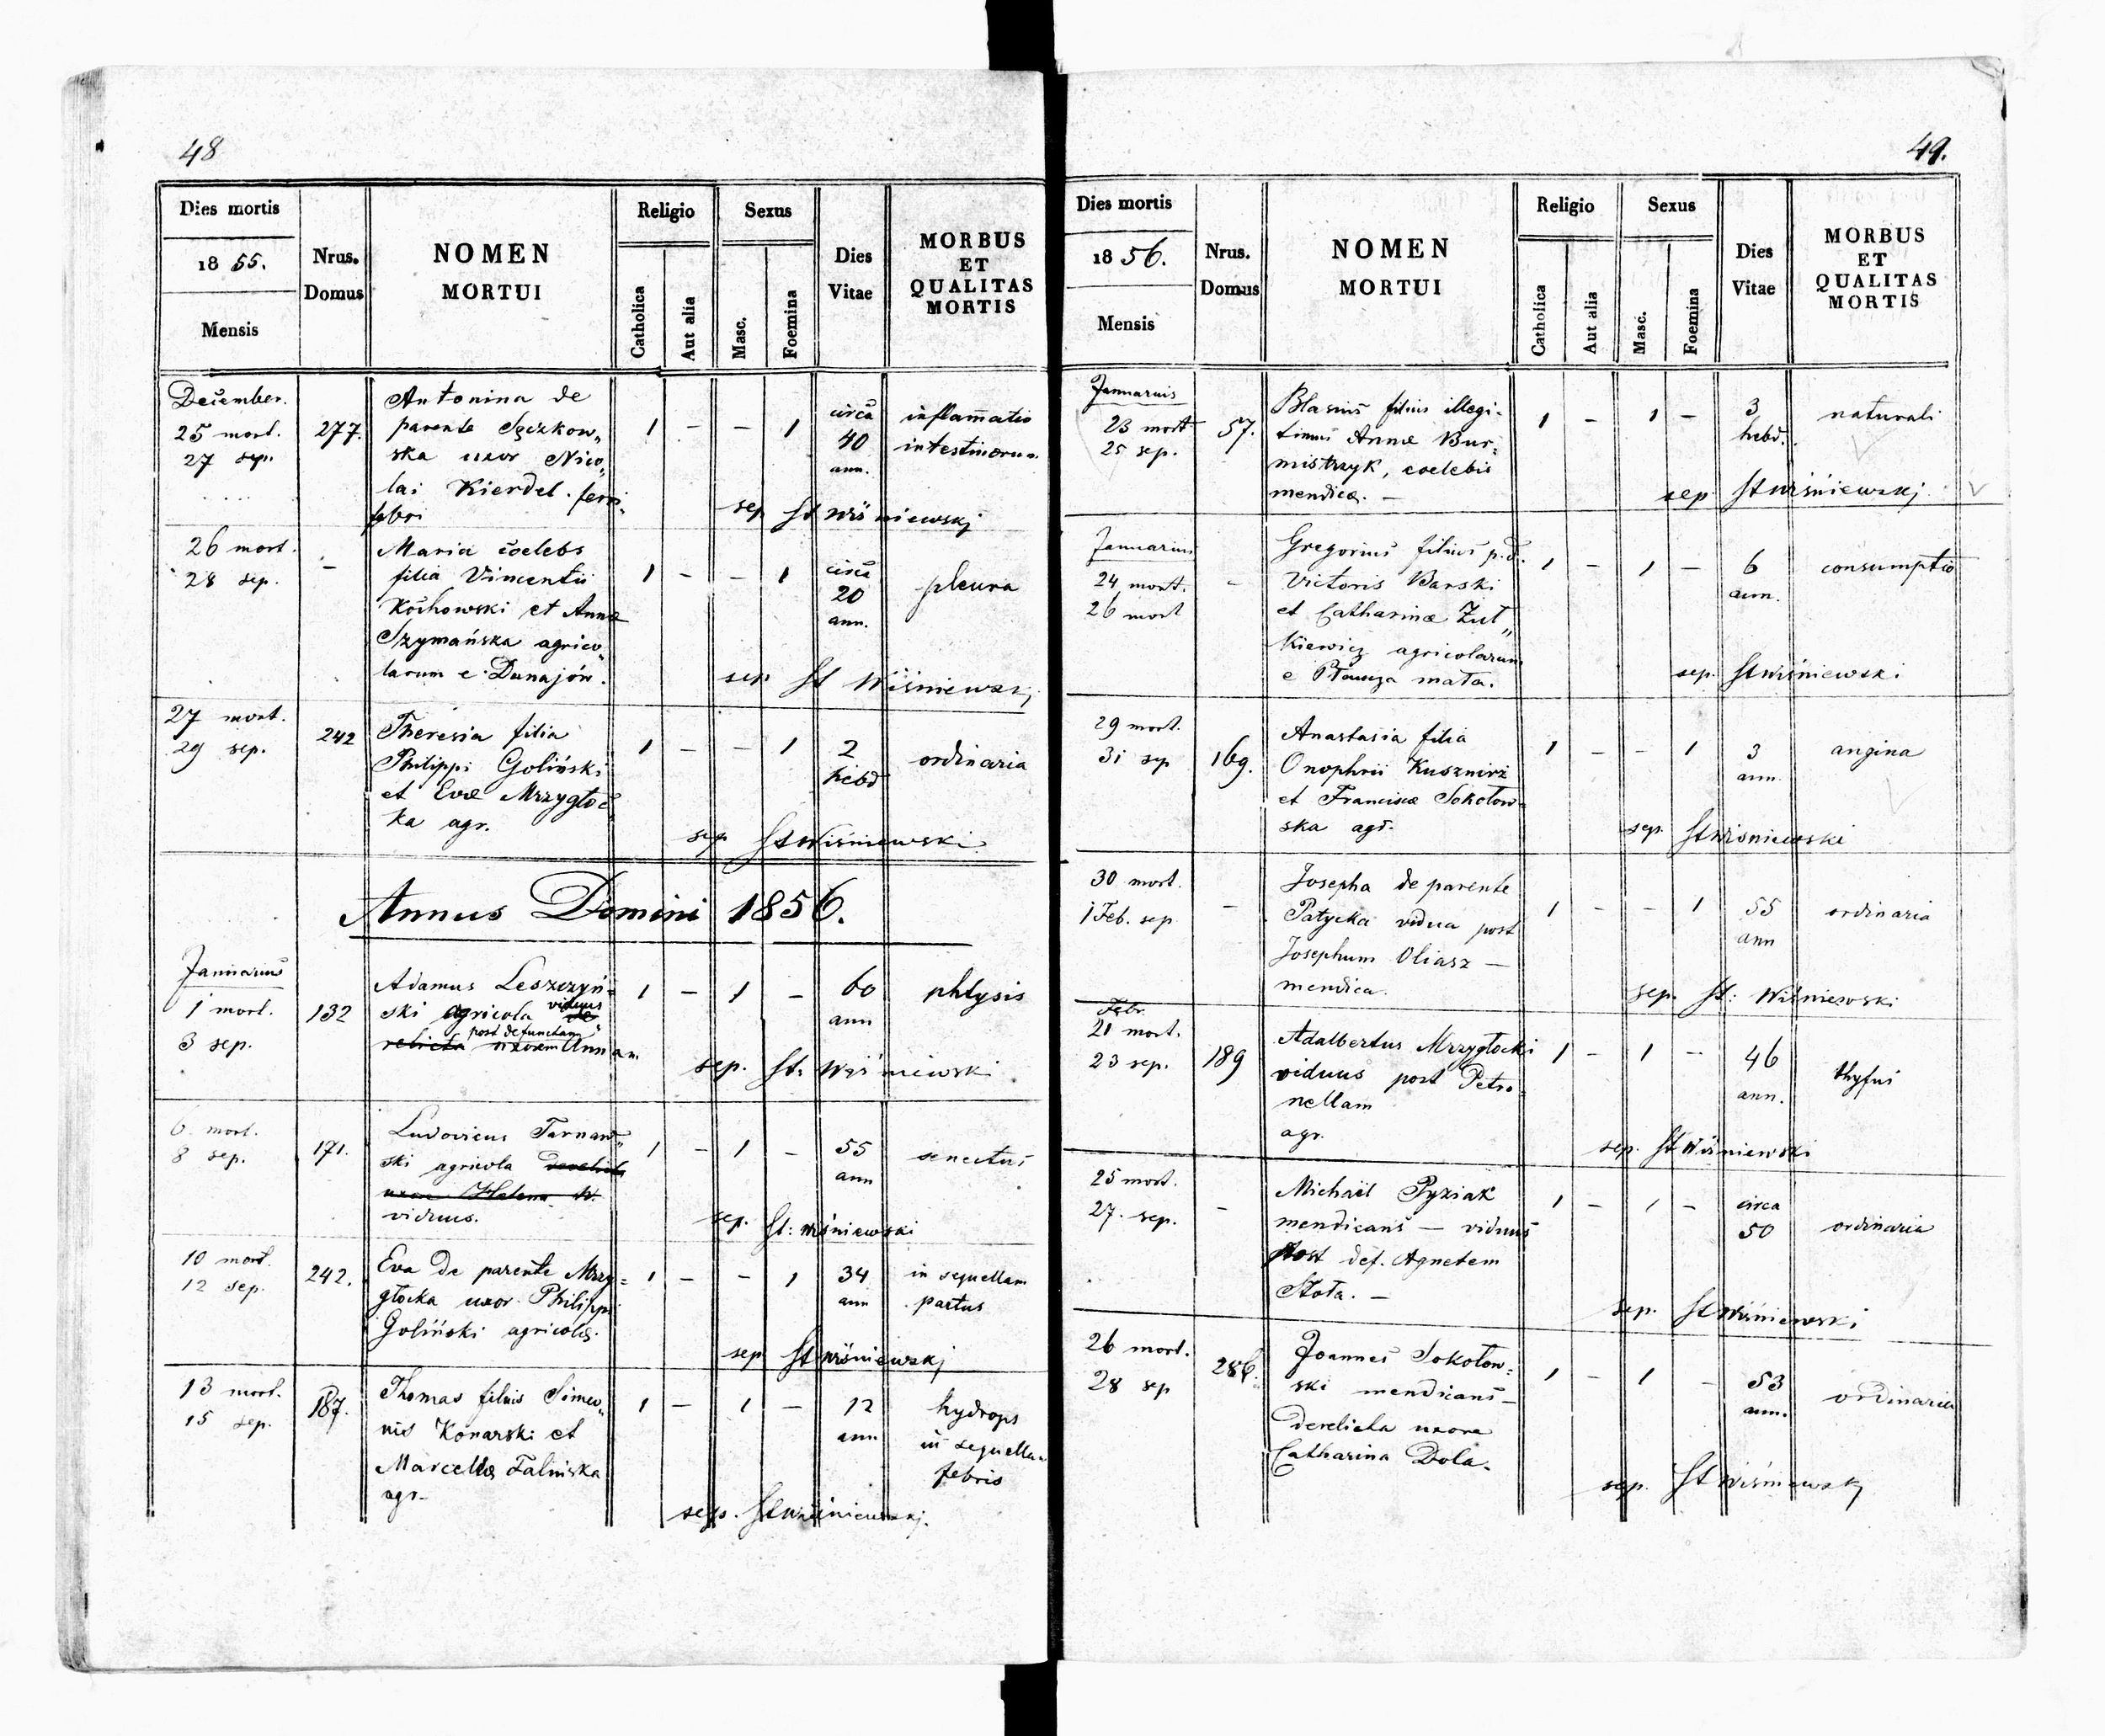 48
Dies mortis
1855.
Mensis
Nrus.
Domus
NOMEN
MORTUI
Religio
Catholica
Aut alia
Sexus
Masc.
Foemina
Dies
Vitae
MORBUS
ET
QUALITAS
MORTIS
December.
25 mort.
27 sep.
277.
Antonina de
parente Szczkow„
ska uxor Nico„
lai Kierdel. ferri
fabri
1 - - 1
circa
40
ann.
inflam̄atio
intestinorum
sep St Wiśniewskj
26 mort.
28 sep.
-
Maria coelebs
filia Vincentii
Kochowski et Annæ
Szymańska agrico„
larum e Dunajów.
1 - - 1
circa
20
ann.
pleura
sep St Wiśniewskj
27 mort.
29 sep.
242
Theresia filia
Philippi Goliński
et Evæ Mrzygłoc
ka agr.
1 - - 1
2
hebd
ordinaria
sep St Wiśniewski
Annus Domini 1856.
Januarius
1 mort.
3 sep.
132
Adamus Leszczyń=
ski agricola viduus
relicta post defunctam
uxorem Annam
1 - 1 -
60
ann
phtysis
sep. St: Wiśniewski
6. mort.
8 sep.
171.
Ludovicus Tarnaw„
ski agricola derelicta
uxore Helena
viduus.
1 - 1 -
55
ann
senectus
sep. St: Wiśniewski
10 mort.
12 sep.
242.
Eva de parente Mrzy=
głocka uxor Philippi
Goliński agricolæ.
1 - - 1
34
ann
in sequellam
partus
sep St Wiśniewskj
13 mort.
15 sep.
187.
Thomas filius Simeo„
nis Konarski et
Marcellæ Falińska
agr.
1 - 1 -
12
ann
hydrops
in sequellam
febris
sep. St Wiśniewskj.
49.
Dies mortis
1856.
Mensis
Nrus.
Domus
NOMEN
MORTUI
Religio
Catholica
Aut alia
Sexus
Masc.
Foemina
Dies
Vitae
MORBUS
ET
QUALITAS
MORTIS
Januarius
23 mort
25 sep.
57.
Blasius filius illegi-
timus Annæ Bur-
mistrzyk, coelebis
mendicæ. -
1 - 1 -
3
hebd.
naturali
sep St Wiśniewskj
Januarius
24 mort.
26 mort
-
Gregorius filius p.d.
Victoris Barski
et Catharinæ Zut„
kiewicz agricolarum
e Płaucza mała.
1 - 1 -
6
ann.
consumptio
sep. St Wiśniewski
29 mort.
31 sep
169.
Anastasia filia
Onophrii Kusznirz
et Franciscæ Sokołow=
ska agr.
1 - - 1
3
ann
angina
sep. St Wiśniewski
30 mort.
1 Feb. sep
-
Josepha de parente
Patycka vidua post
Josephum Oliasz -
mendica.
1 - - 1
55
ann
ordinaria
sep. St: Wiśniewski
Febr.
21 mort.
23 sep.
189
Adalbertus Mrzygłocki
viduus post Petro
nellam
agr.
1 - 1 -
46
ann.
thyfus
sep. St Wiśniewski
25 mort.
27. sep.
-
Michaël Pyziak
mendicans - viduus
post def. Agnetem
Stota. -
1 - 1 -
circa
50
ordinaria
sep. St Wiśniewski
26 mort.
28 sep
286.
Joannes Sokołow=
ski mendicans -
derelicta uxore
Catharina Dola.
1 - 1 -
53
ann.
ordinaria
sep. St Wiśniewskj